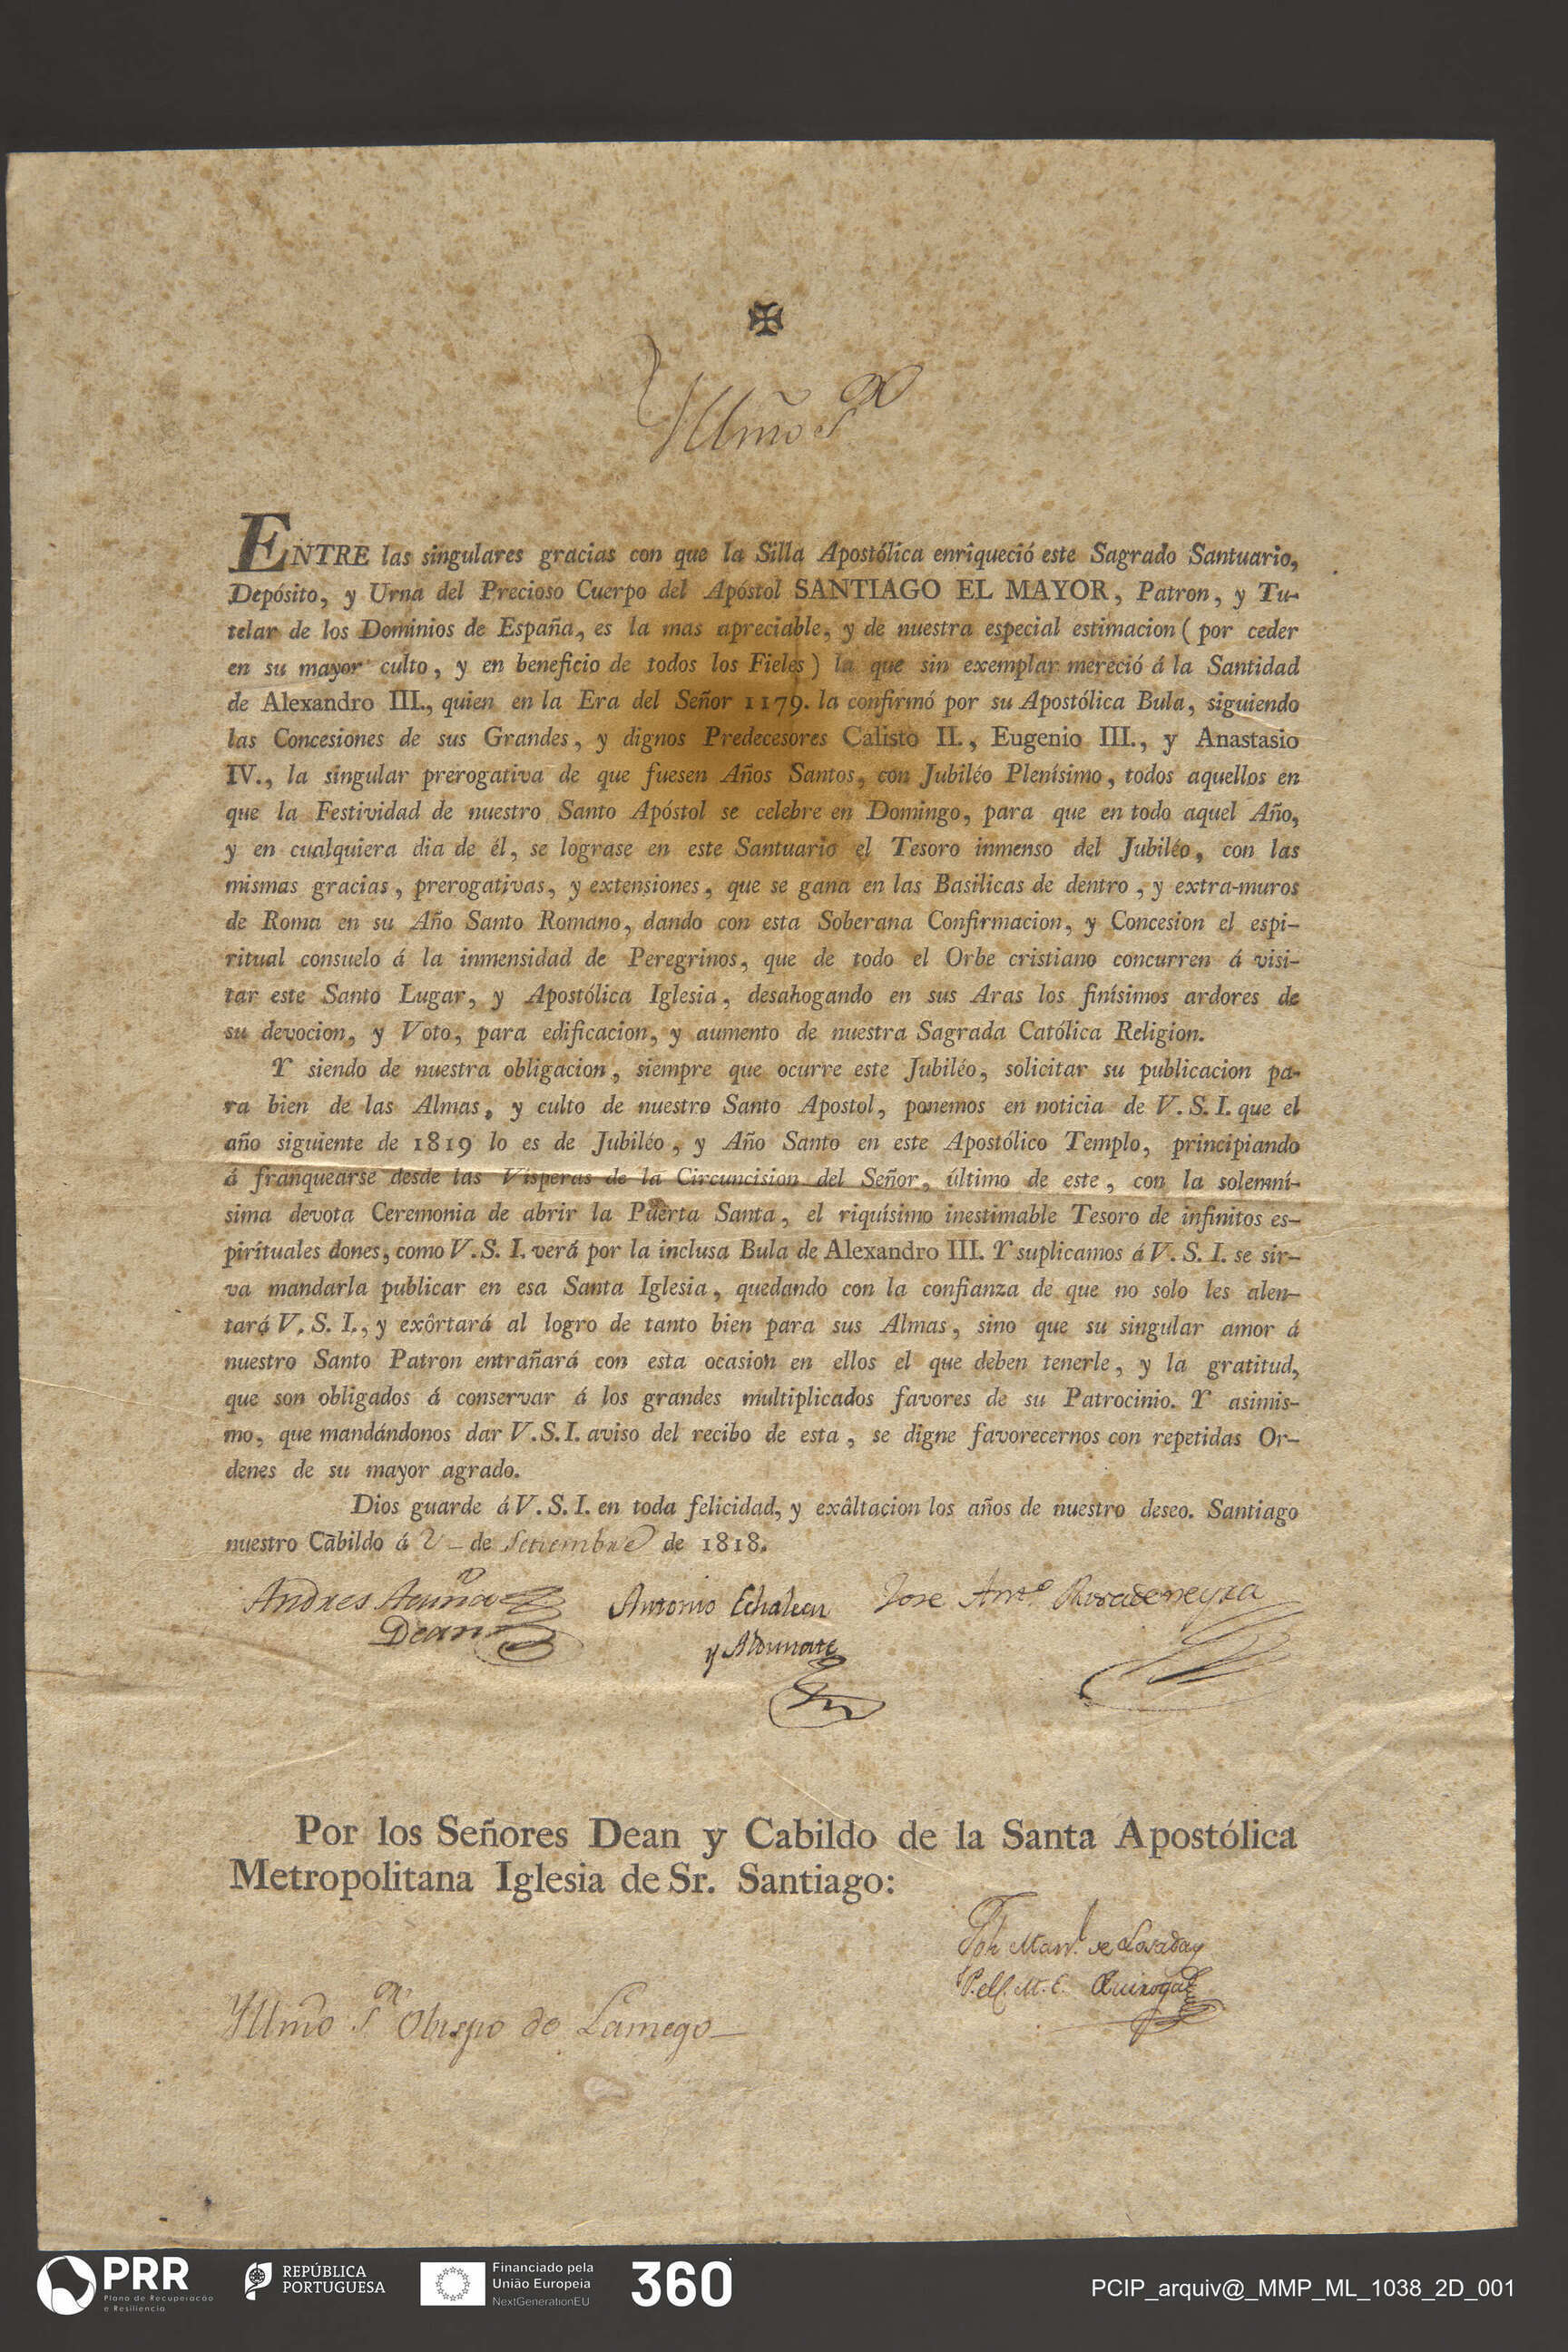 ✠
Yllmo Sor
ENTRE las singulares gracias con que la Silla Apostólica enriqueció este Sagrado Santuario,
Depósito, y Urna del Precioso Cuerpo del Apóstol SANTIAGO EL MAYOR, Patron, y Tu-
telar de los Dominios de España, es la mas apreciable, y de nuestra especial estimacion ( por ceder
en su mayor culto, y en beneficio de todos los Fieles ) la que sin exemplar mereció á la Santidad
de Alexandro III., quien en la Era del Señor 1179. la confirmó por su Apostólica Bula, siguiendo
las Concesiones de sus Grandes, y dignos Predecesores Calisto II., Eugenio III., y Anastasio
IV., la singular prerogativa de que fuesen Años Santos, con Jubiléo Plenísimo, todos aquellos en
que la Festividad de nuestro Santo Apóstol se celebre en Domingo, para que en todo aquel Año,
y en cualquiera dia de él, se lograse en este Santuario el Tesoro inmenso del Jubiléo, con las
mismas gracias, prerogativas, y extensiones, que se gana en las Basilicas de dentro, y extra-muros
de Roma en su Año Santo Romano, dando con esta Soberana Confirmacion, y Concesion el espi-
ritual consuelo á la inmensidad de Peregrinos, que de todo el Orbe cristiano concurren á visi-
tar este Santo Lugar, y Apostólica Iglesia, desahogando en sus Aras los finísimos ardores de
su devocion, y Voto, para edificacion, y aumento de nuestra Sagrada Católica Religion.
Y siendo de nuestra obligacion, siempre que ocurre este Jubiléo, solicitar su publicacion pa-
ra bien de las Almas, y culto de nuestro Santo Apostol, ponemos en noticia de V. S. I. que el
año siguiente de 1819 lo es de Jubiléo, y Año Santo en este Apostólico Templo, principiando
á franquearse desde las Vísperas de la Circuncision del Señor, último de este, con la solemní-
sima devota Ceremonia de abrir la Puerta Santa, el riquísimo inestimable Tesoro de infinitos es-
pirituales dones, como V. S. I. verá por la inclusa Bula de Alexandro III. Y suplicamos á V. S. I. se sir-
va mandarla publicar en esa Santa Iglesia, quedando con la confianza de que no solo les alen-
tará V. S. I., y exôrtará al logro de tanto bien para sus Almas, sino que su singular amor á
nuestro Santo Patron entrañará con esta ocasion en ellos el que deben tenerle, y la gratitud,
que son obligados á conservar á los grandes multiplicados favores de su Patrocinio. Y asimis-
mo, que mandándonos dar V. S. I. aviso del recibo de esta, se digne favorecernos con repetidas Or-
denes de su mayor agrado.
Dios guarde á V. S. I. en toda felicidad, y exâltacion los años de nuestro deseo. Santiago
nuestro Cabildo á 2 de Setiembre de 1818.
Andres Acuña Antonio Echalecu Jose Anto Rivadeneyra
Dean y Aldunate
Por los Señores Dean y Cabildo de la Santa Apostólica
Metropolitana Iglesia de Sr. Santiago:
Manl. de Losada y
Quiroga
Yllmo Sor Obispo de Lamego
PRR
Plano de Recuperação
e Resiliência
REPÚBLICA
PORTUGUESA
Financiado pela
União Europeia
NextGenerationEU
360
PCIP_arquiv@_MMP_ML_1038_2D_001